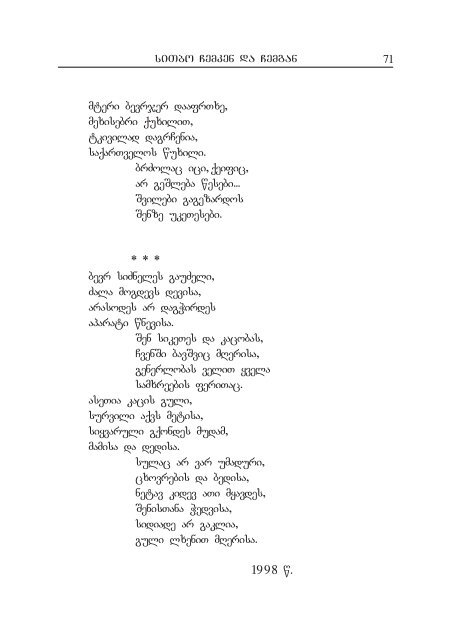 სითბო ჩემკენ და ჩემგან 71
მტერი ბევრჯერ დააფრთხე,
მეხისებრი ქუხილით,
ტკივილად დაგრჩენია,
საქართველოს წუხილი.
ბრძოლაც იცი, ქეიფიც,
არ გეშლება წესები...
შვილები გაგეზარდოს
შენზე უკეთესები.
* * *
ბევრ სიძნელეს გაუძელი,
ძალა მოგდევს დევისა,
არასოდეს არ დაგჭირდეს
აპარატი წნევისა.
შენ სიკეთეს და კაცობას,
ჩვენში ბავშვიც მღერისა,
გენერლობას ველით ყველა
სამხრეების ფერითაც.
ასეთია კაცის გული,
სურვილი აქვს მეტისა,
სიყვარული გქონდეს მუდამ,
მამისა და დედისა.
სულაც არ ვარ უმადური,
ცხოვრების და ბედისა,
ნეტავ კიდევ ათი მყავდეს,
შენისთანა ჭედვისა,
სიდიადე არ გაკლია,
გული ლხენით მღერისა.
1998 წ.